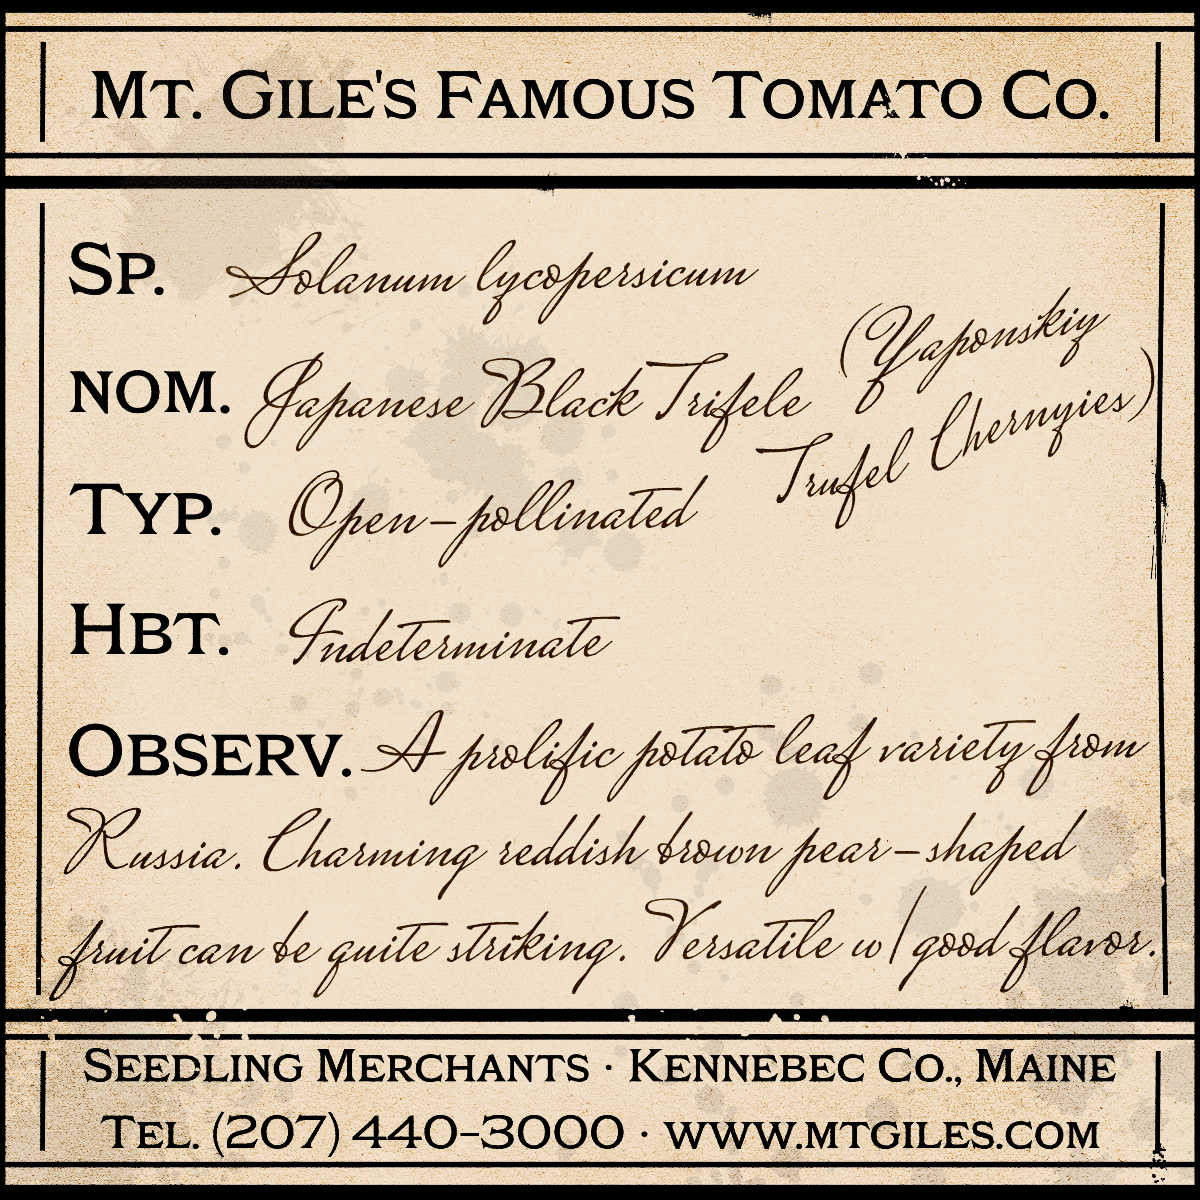 Mt. Gile's Famous Tomato Co.
Sp. Solanum lycopersicum
Nom. Japanese Black Trifele (Yaponskiy
Trufel Chernyies)
Typ. Open-pollinated
Hbt. Indeterminate
Observ. A prolific potato leaf variety from
Russia. Charming reddish brown pear-shaped
fruit can be quite striking. Versatile w/ good flavor.
Seedling Merchants · Kennebec Co., Maine
Tel. (207) 440-3000 · www.mtgiles.com